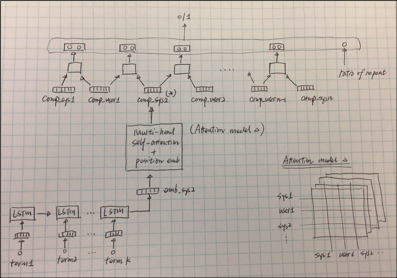 0/1
ratio of repeat
comp_sys1 comp_user1 comp_sys2 comp_user2
(*)
Multi-head
self-attention
+
position emb
(Attention model △)
emb_sys2
LSTM LSTM LSTM
term1 term2 term k
Attention model △
sys1
user1
sys2
sys1 user1 sys2